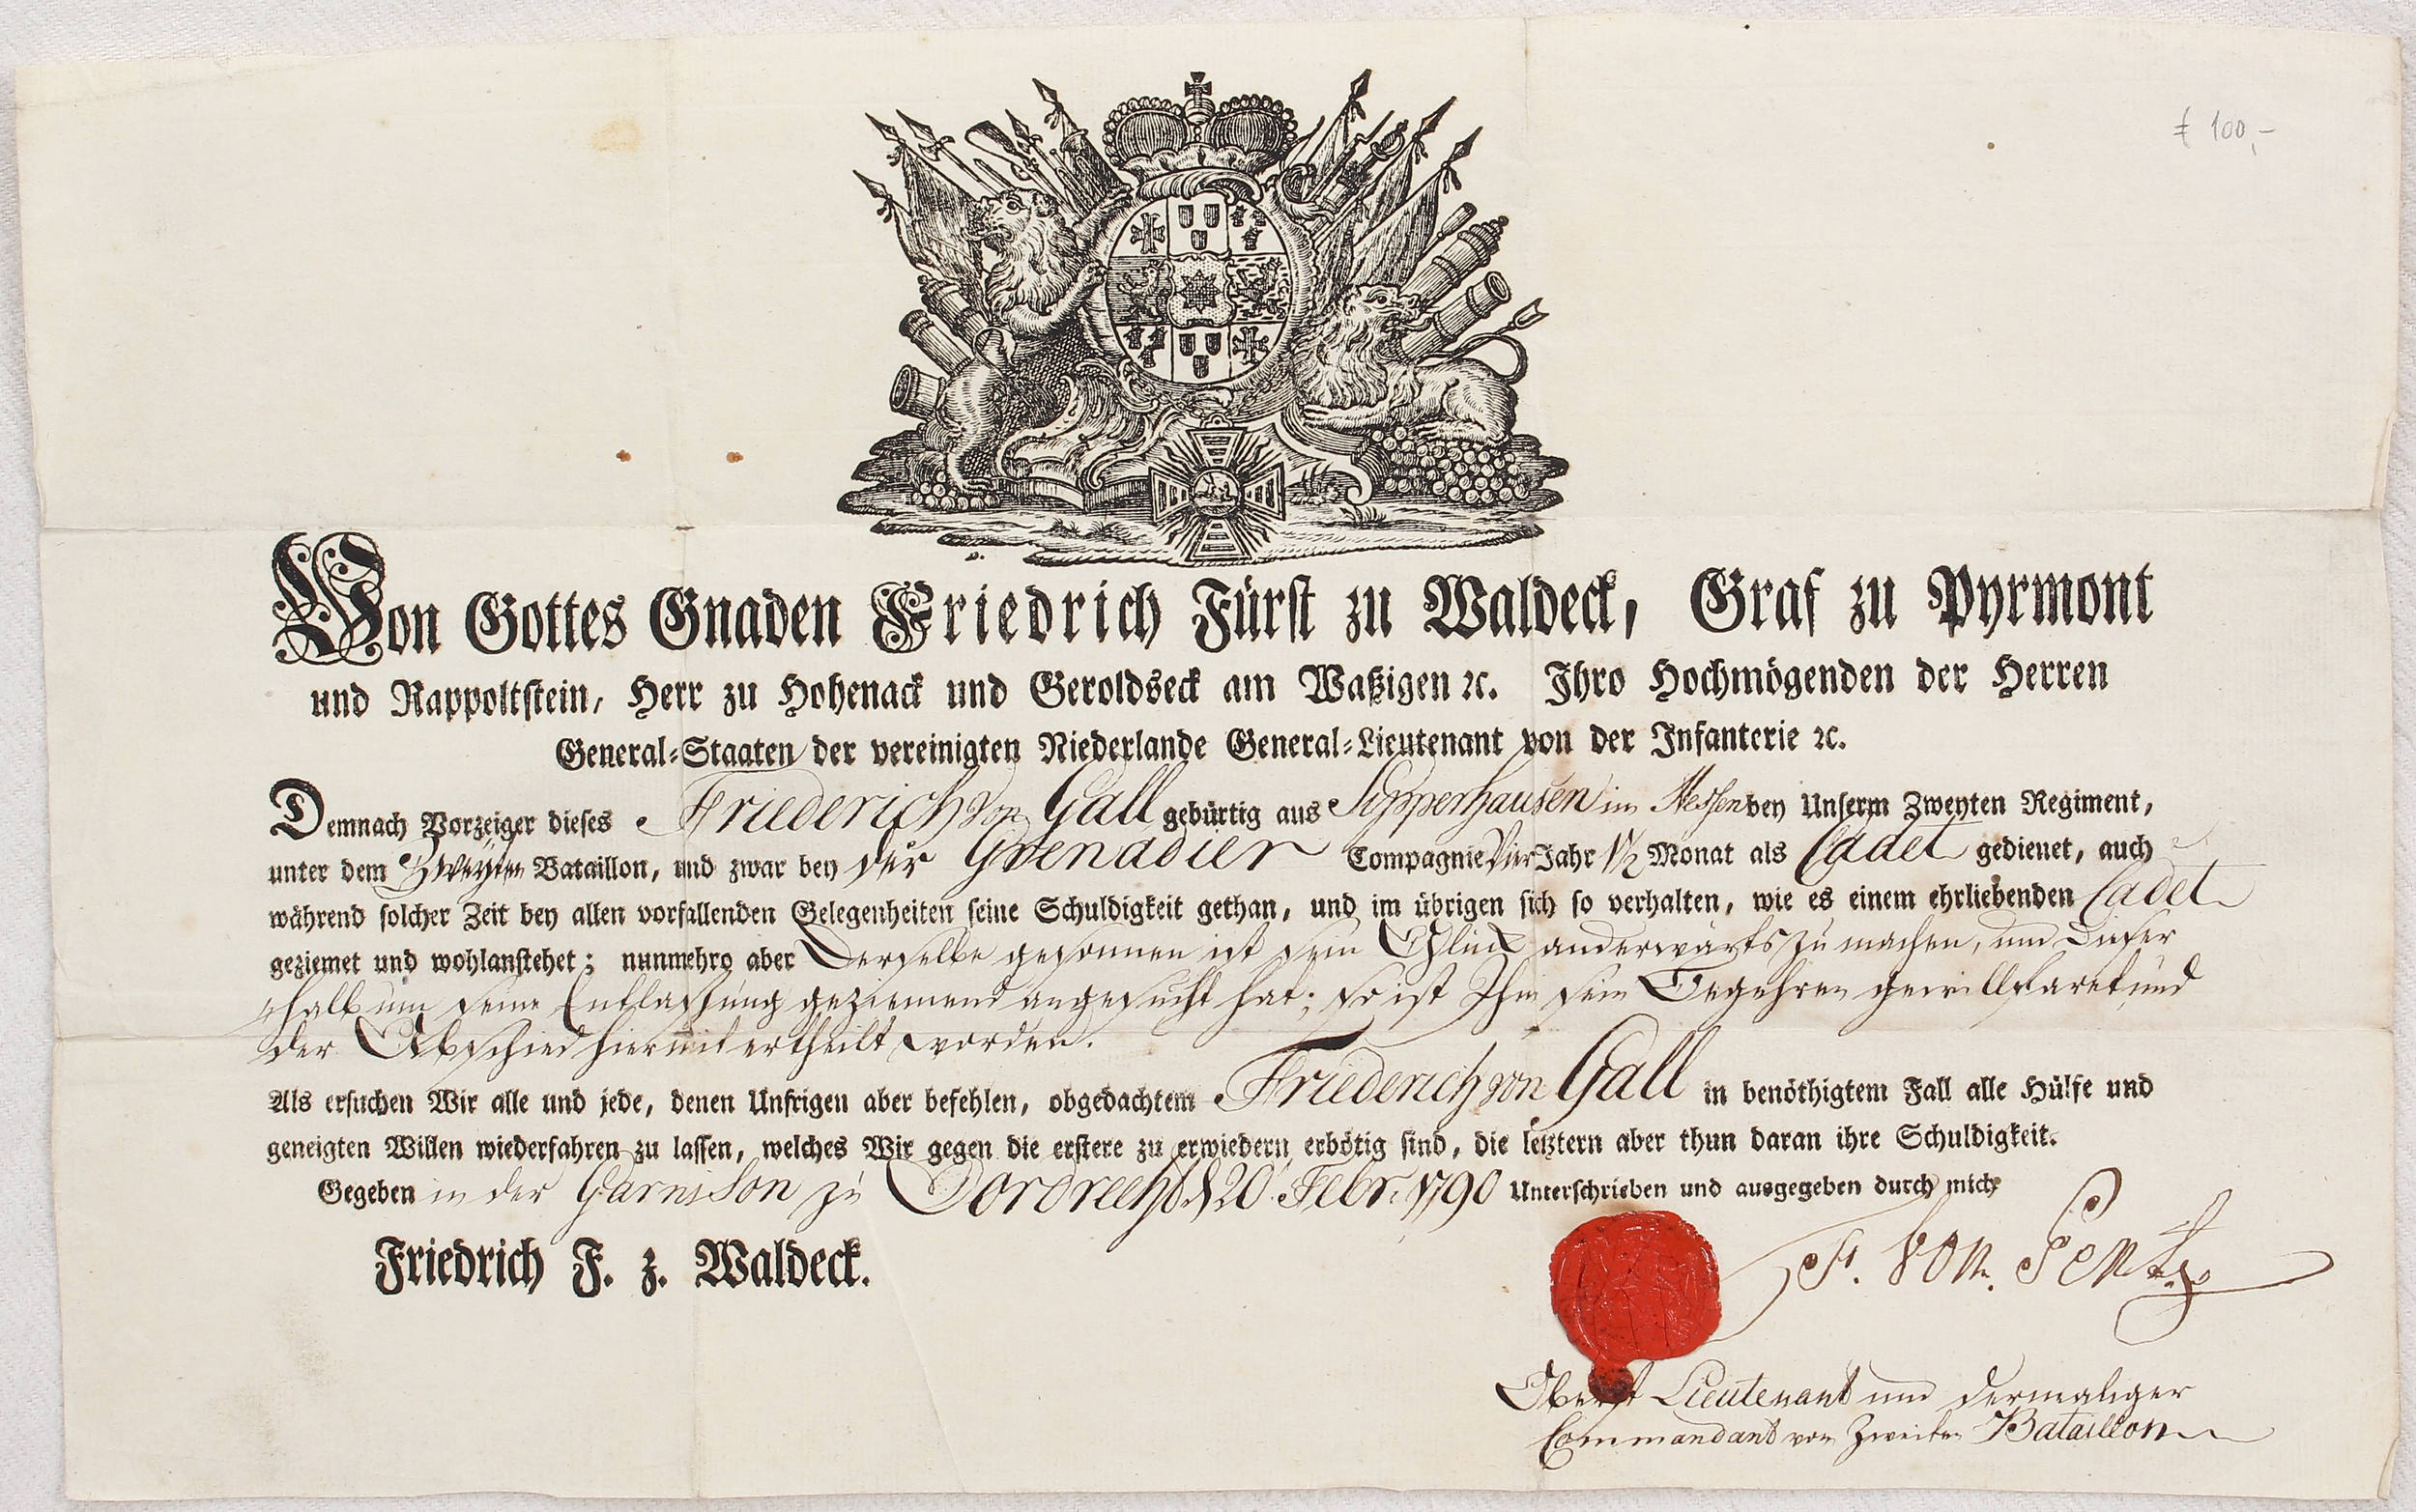 € 100,-
Von Gottes Gnaden Friedrich Fürst zu Waldeck, Graf zu Pyrmont
und Rappoltstein, Herr zu Hohenack und Geroldseck am Waßigen ꝛc. Ihro Hochmögenden der Herren
General-Staaten der vereinigten Niederlande General-Lieutenant von der Infanterie ꝛc.
Demnach Vorzeiger dieses Friederich von Gall gebürtig aus Sipperhausen in Hessen bey Unserm Zweyten Regiment,
unter dem Zweyten Bataillon, und zwar bey der Grenadier Compagnie Vier Jahr 1½ Monat als Cadet gedienet, auch
während solcher Zeit bey allen vorfallenden Gelegenheiten seine Schuldigkeit gethan, und im übrigen sich so verhalten, wie es einem ehrliebenden Cadet
geziemet und wohlanstehet; nunmehro aber Derselbe gesonnen ist sein Glück anderwärts zu machen, und dieser
halb um seine Entlassung geziemend angesucht hat; so ist Ihm sein Begehren gewillfaret und
der Abschied hiermit ertheilt worden.
Als ersuchen Wir alle und jede, denen Unsrigen aber befehlen, obgedachtem Friederich von Gall in benöthigtem Fall alle Hülfe und
geneigten Willen wiederfahren zu lassen, welches Wir gegen die erstere zu erwiedern erbötig sind, die letztern aber thun daran ihre Schuldigkeit.
Gegeben in der Garnison zu Dordrecht d 20 Febr. 1790 Unterschrieben und ausgegeben durch mich
Friedrich F. z. Waldeck.
F. von
Oberst Lieutenant und dermaliger
Commandant vom Zweiten Bataillon